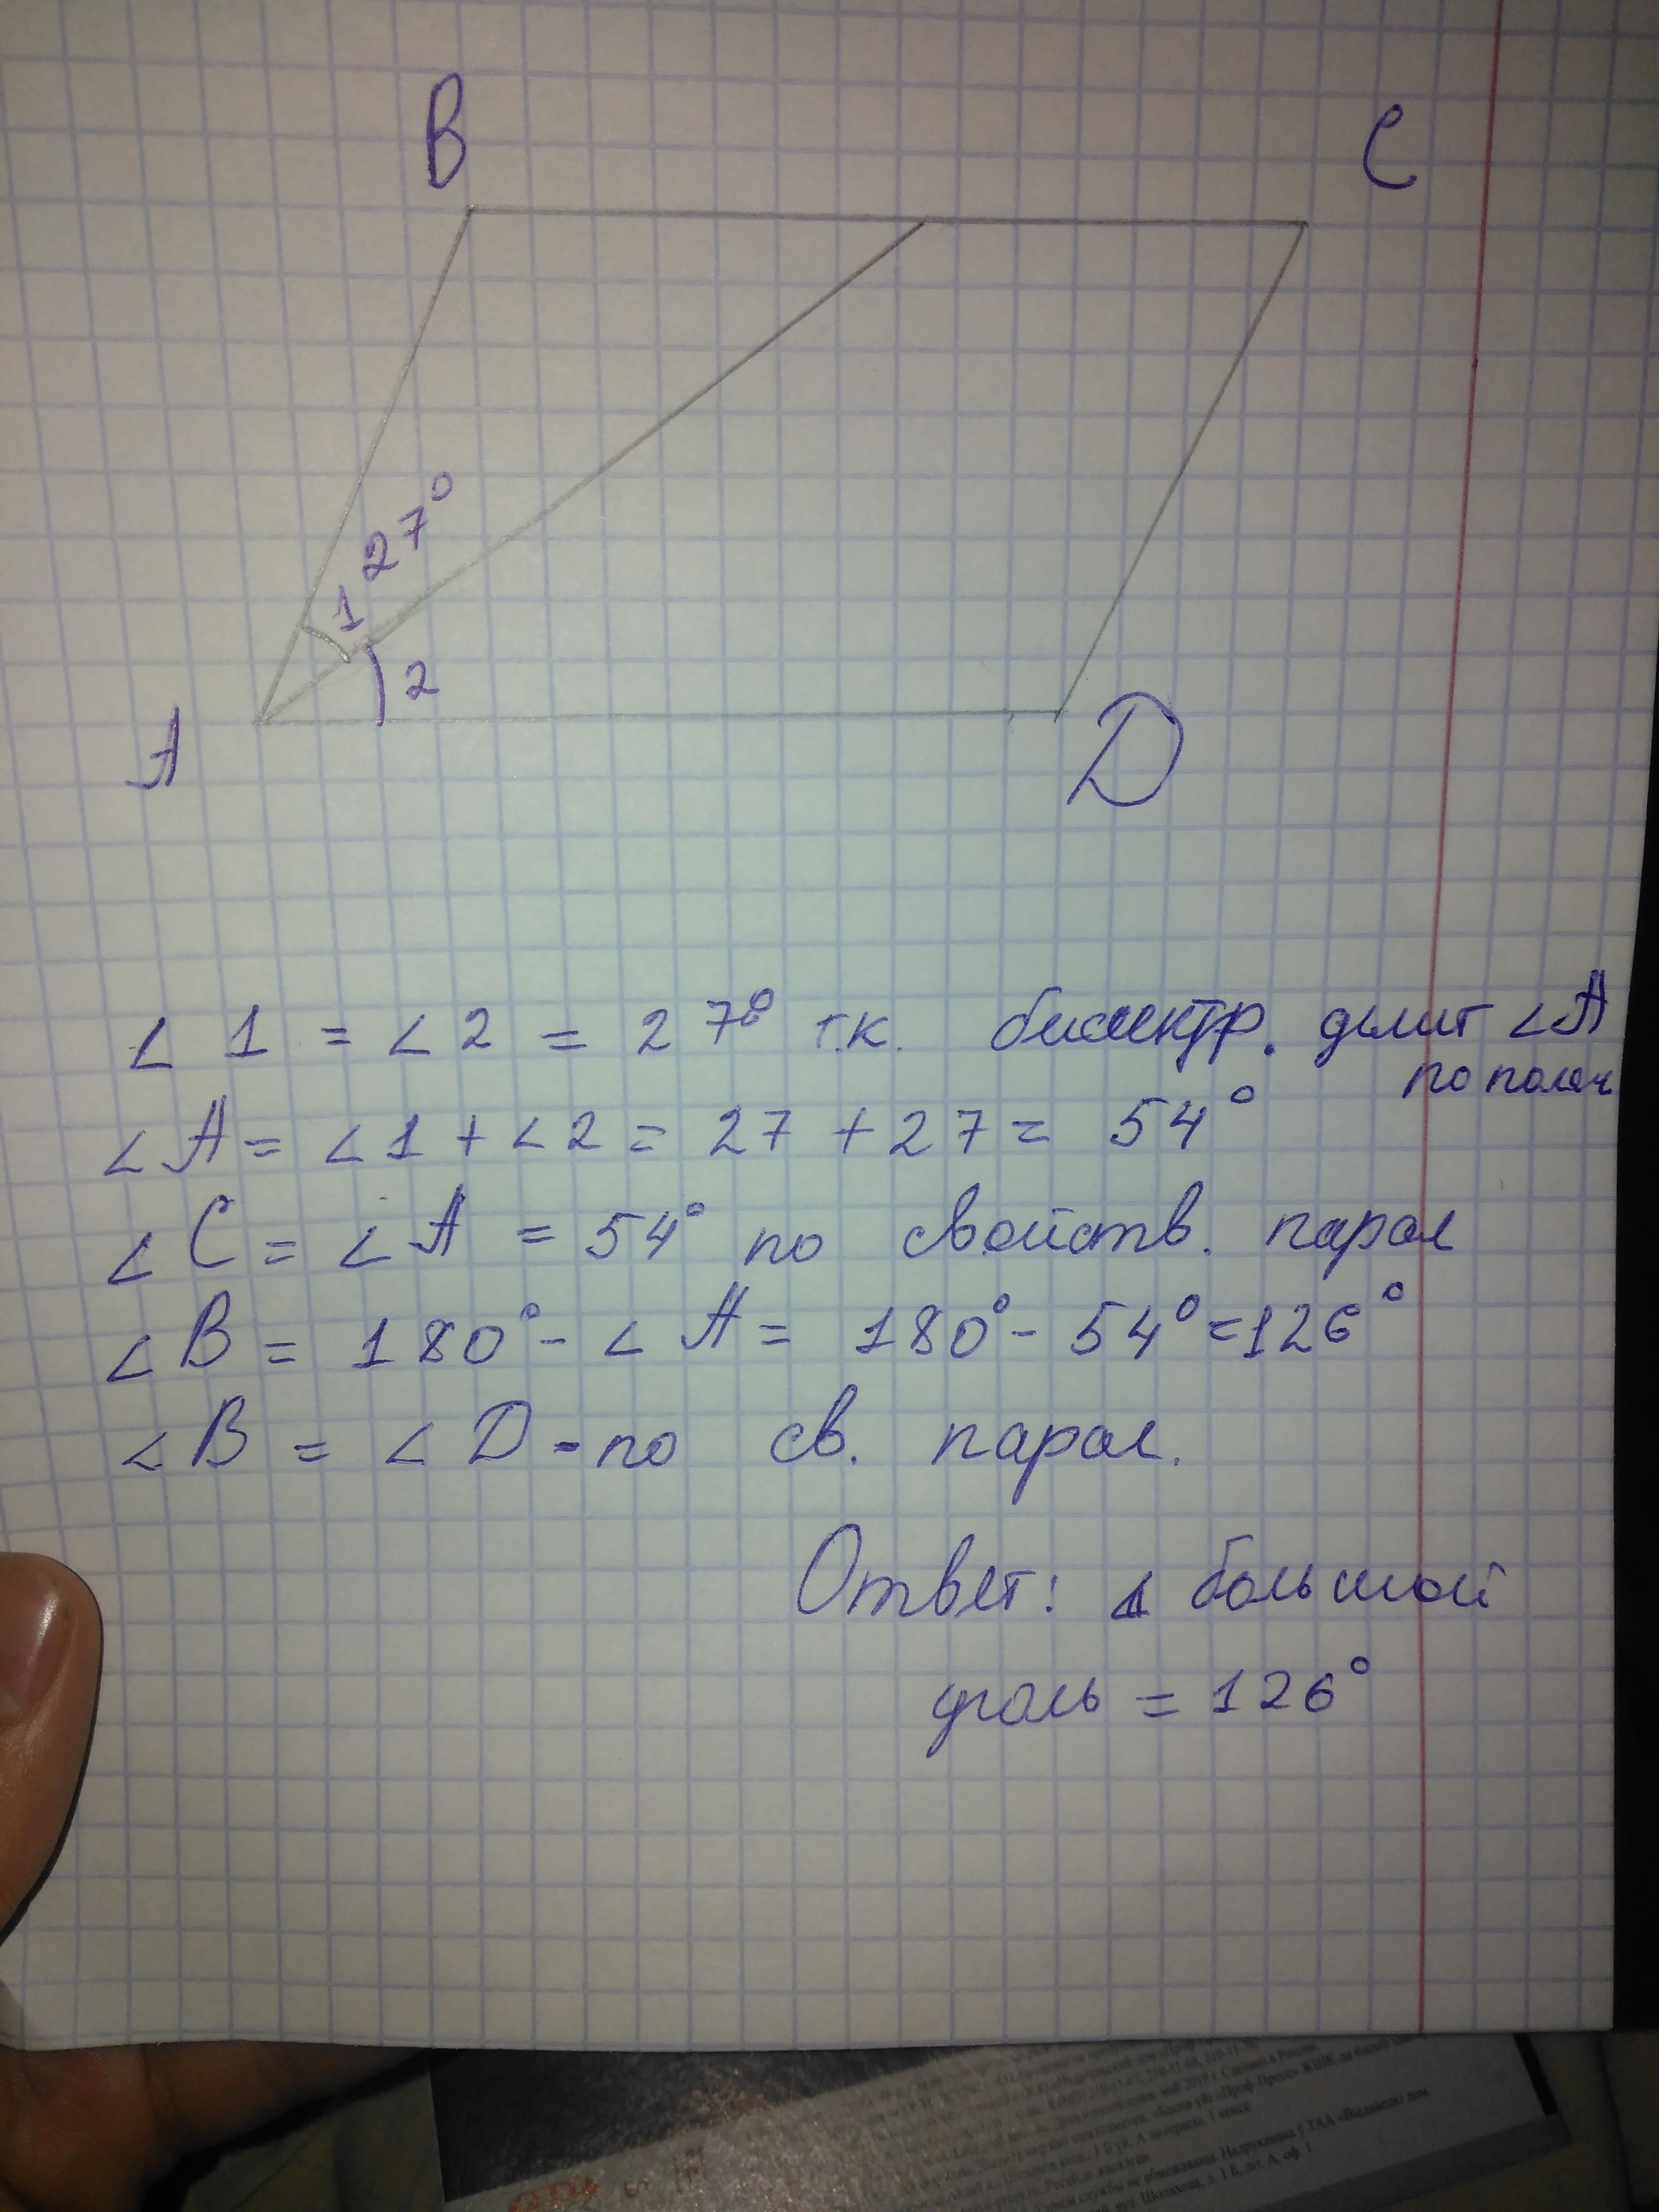 B
C
27°
1
2
A
D
∠ 1 = ∠ 2 = 27° т.к. биссектр. делит ∠A
пополам
∠A = ∠1 + ∠2 = 27 + 27 = 54°
∠C = ∠A = 54° по свойств. парал
∠B = 180° - ∠A = 180° - 54° = 126°
∠B = ∠D - по св. парал.
Ответ: большой
уголь = 126°